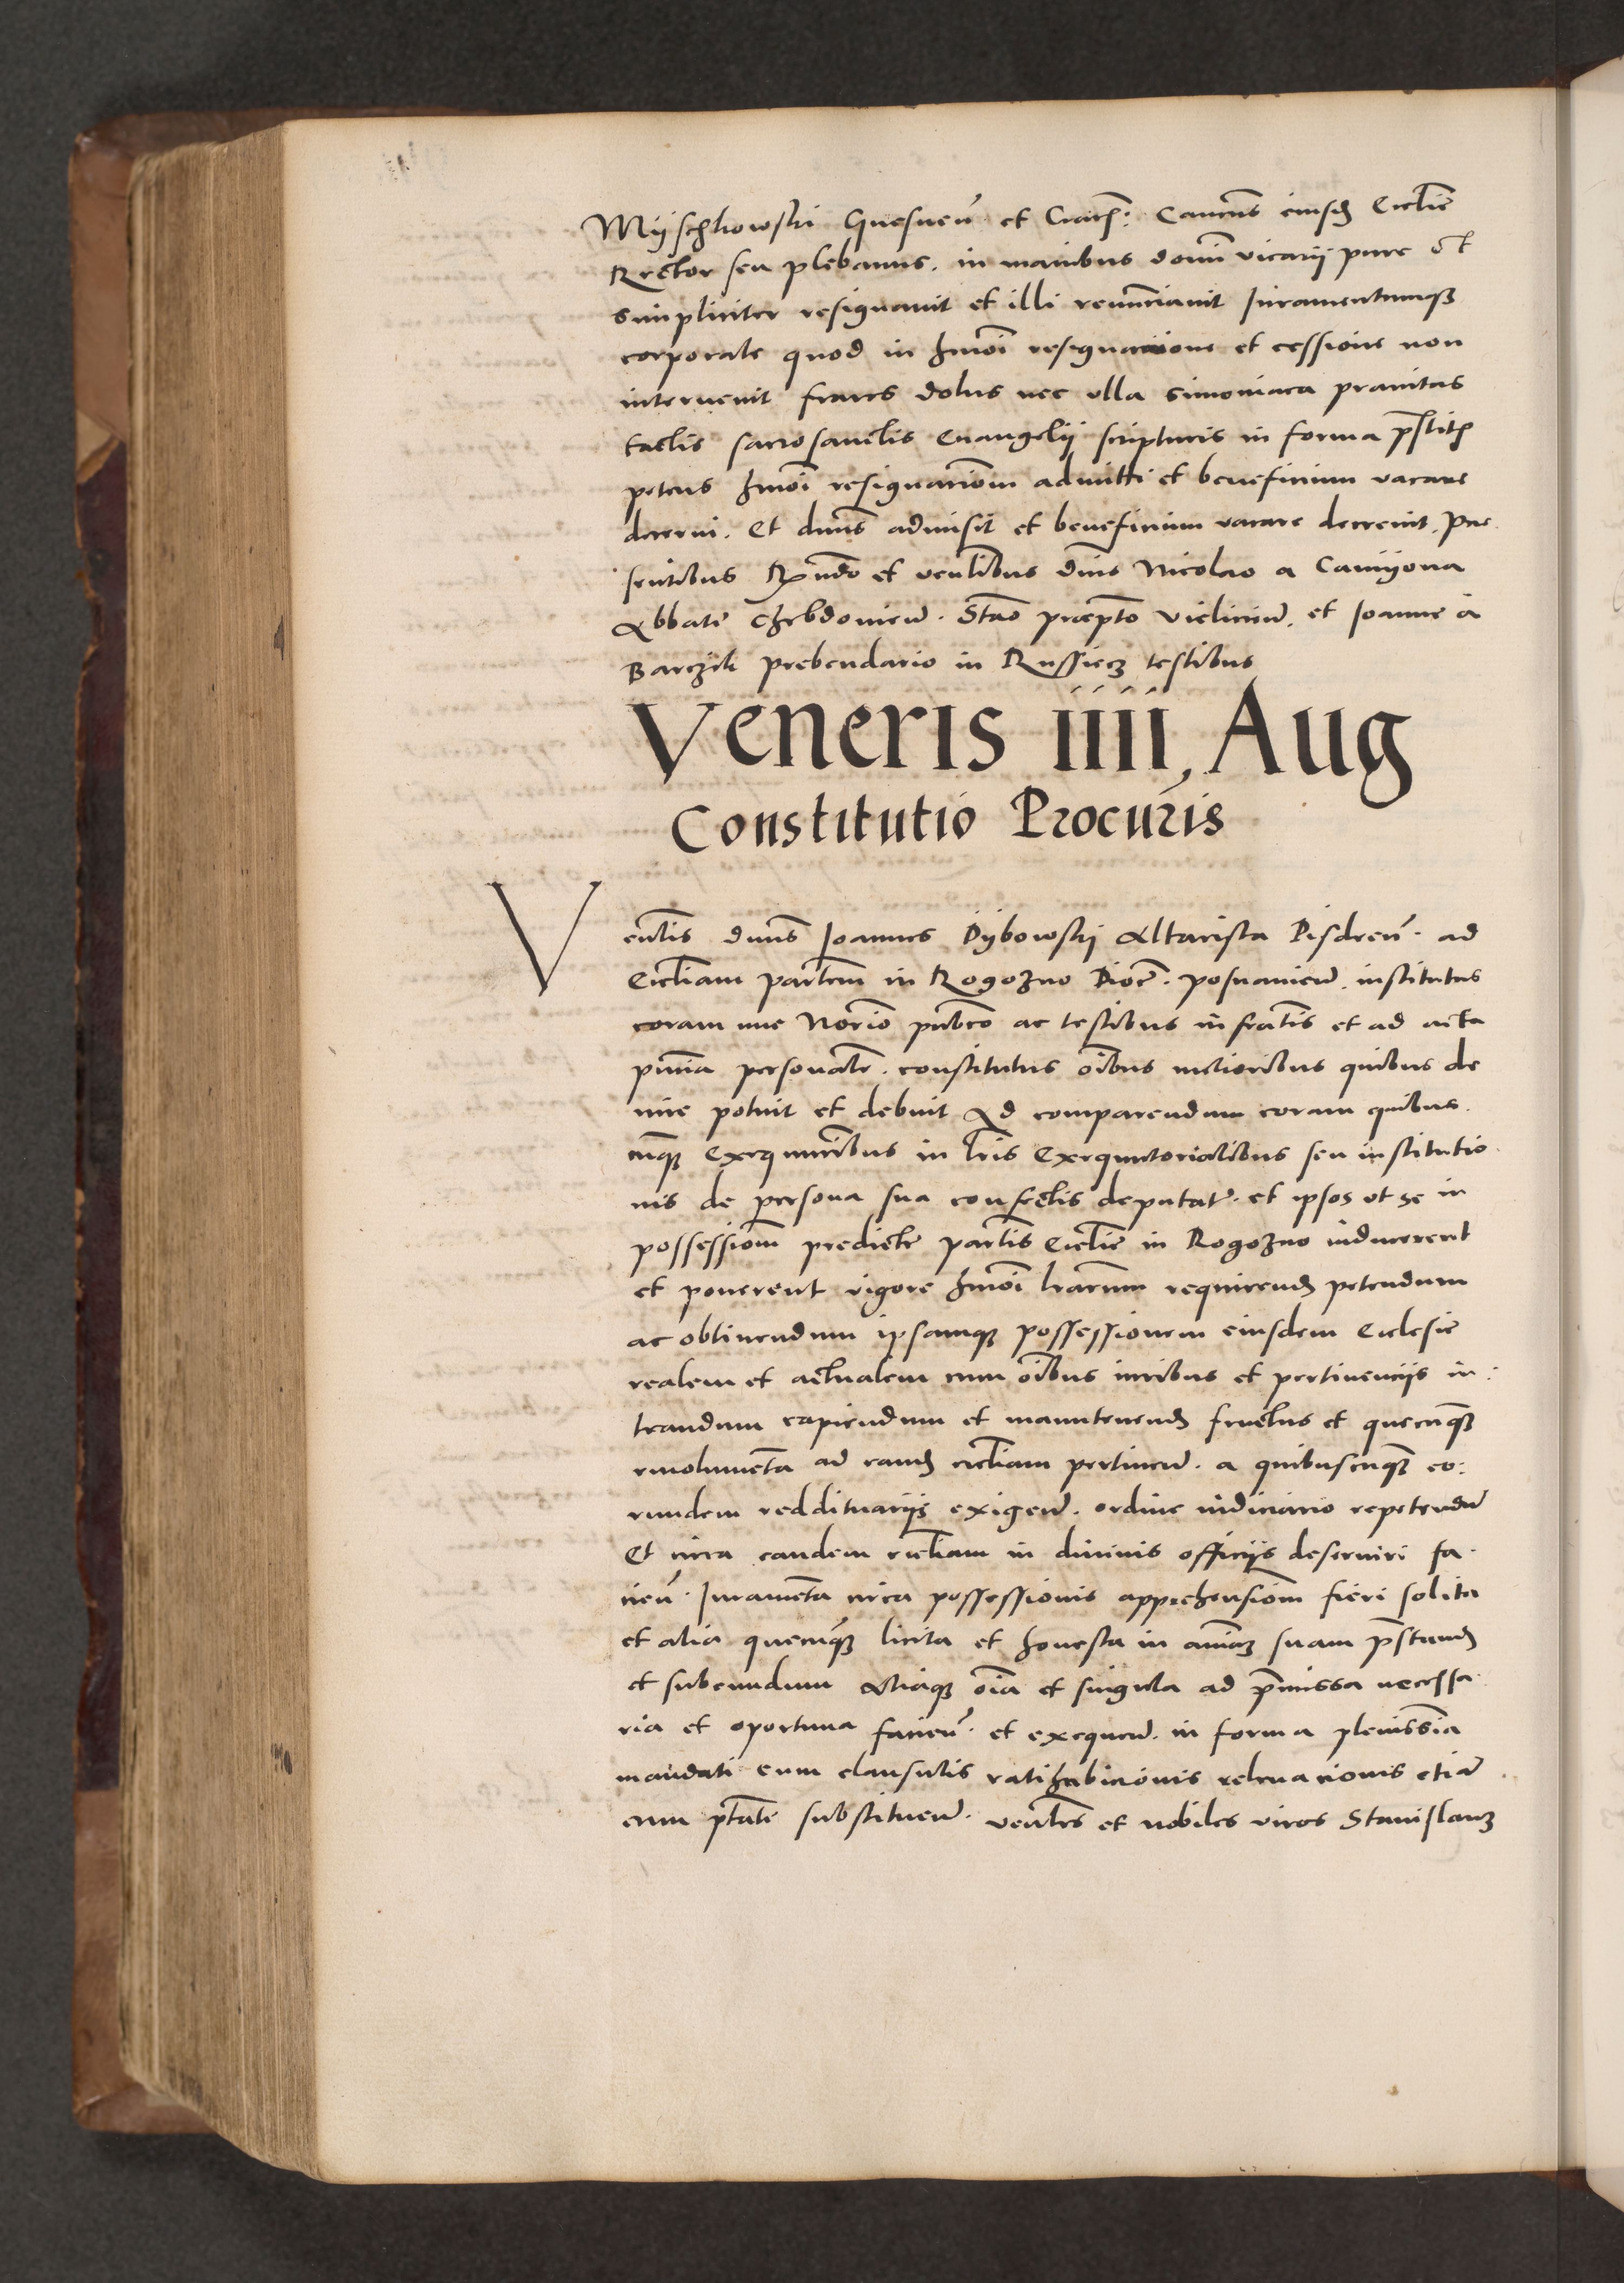 Myschkowski Gnesnen̄ et Crac̄: Canonˢ eiusd Ecclīe
Rector seu plebanus. in manibus domī vicarij pure et
simpliciter resignauit et illi renunciauit Iuramentumqȝ
corporale quod in hmōi resignacione et cessione non
interuenit fraus dolus nec vlla simoniaca prauitas
tactis sacrosanctis Euangelij scripturis in forma p̄stitit
petens hmōi resignationem admitti et beneficium vacare
decerni. Et dn̄us admisit et beneficium vacare decreuit. Pre
sentibus Rn̄do et ven̄libus dn̄is Nicolao a
Abbate Stāo prępto et Ioanne a
prebendario in testibus
Veneris iiii, Aug
Constitutio Procuris
Ven̄lis dn̄us Ioannes Dybowskij Altarista Pisdren̄. ad
Ecclīam partem in Rogozno Dioc̄. posnanien̄. institutus
coram me Norio pub̄co ac testibus infrātis et ad acta
pn̄tia personalr̄. constitutus oīb̄us melioribus quibus de
iure potuit et debuit Ad comparendum coram quibus
cūqȝ Exequutoribus in lr̄is Exequutorialibus seu institutio
nis de persona sua confectis deputat. et ipsos vt se in
possessionem predicte partis Ecclīe in Rogozno inducerent
et ponerent vigore hmōi lr̄arum requirend petendum
ac obtinendum ipsamqȝ possessionem eiusdem Ecclesie
realem et actualem cum oīb̄us iuribus et pertinencijs in:
trandum capiendum et manutenend fructus et quecūqȝ
emolumenta ad eand ecclīam pertinen̄. a quibuscūqȝ eo:
rundem reddituarijs exigen̄. ordine iudiciario repetendū
Et circa eandem ecclīam in diuinis officijs deseruiri fa
cien̄. Iuramenta circa possessionis apprehensionem fieri solita
et alia quecūqȝ licita et honesta in animā suam p̄stand
et subeundum Aliaqȝ oīa et singula ad p̄missa necessa
ria et oportuna facien̄. et exequen̄. in forma plenissīa
mandati cum clausulis ratihabicionis releuacionis etiā
cum p̄tate substituen̄. ven̄les et nobiles viros Stanislauȝ